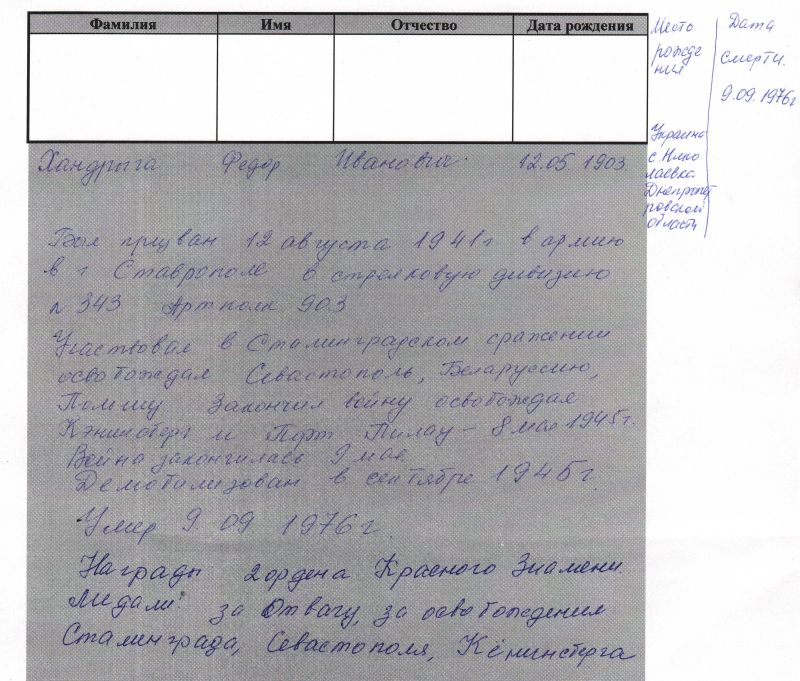 Фамилия Имя Отчество Дата рождения
Место рожде ния
Дата смерти.
9.09.1976г
Украина с. Нико лаевка Днепропет ровской области
Хандрыга Федор Иванович. 12.05 1903.
Был призван 12 августа 1941г в армию
в г Ставрополе в стрелковую дивизию
№ 343 Артполк 903
Участвовал в Сталинградском сражении
освобождал Севастополь, Беларуссию,
Польшу. Закончил войну освобождая
Кэнинсберг и Порт Пилау – 8 мая 1945г.
Война закончилась 9 мая.
Демобилизован в сентябре 1945г.
Умер 9. 09 1976г.
Награды 2 ордена Красного Знамени
Медали: за Отвагу, за освобождения
Сталинграда, Севастополя, Кёнинсберга